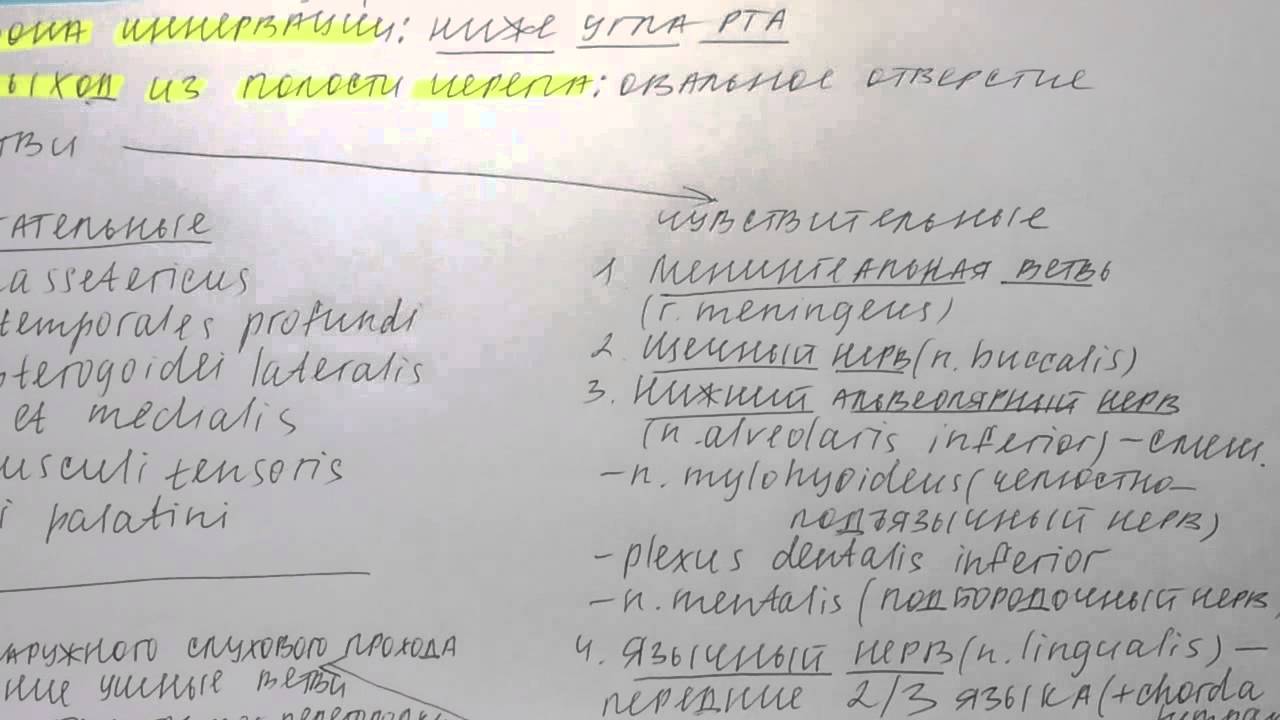 она иннервации: ниже угла рта
ыход из полости черепа: овальное отверстие
тви
гательные
assetericus
temporales profundi
pterogoidei lateralis
et medialis
usculi tensoris
i palatini
чувствительные
1. Менингеальная ветвь
(r. meningeus)
2. Щечный нерв (n. buccalis)
3. Нижний альвеолярный нерв
(n. alveolaris inferior) – смеш.
– n. mylohyoideus (челюстно-
подъязычный нерв)
– plexus dentalis inferior
– n. mentalis (подбородочный нерв
4. Язычный нерв (n. lingualis) –
передние 2/3 языка (+chorda
аружного слухового прохода
ние ушные ветви